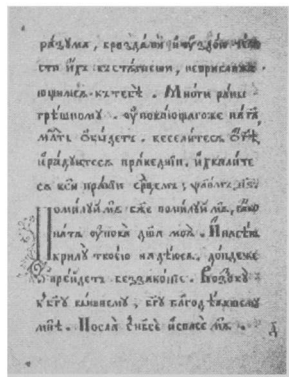 разума, броздами и оуздою челю
сти ихъ въстѧгнеши, неприближа
ющимсѧ къ тебѣ. Многи раны
грѣшному. оуповающагоже на гд҃а,
мл҃ть обыдетъ. веселитесѧ ѡ гд҃ѣ
ирадуитесѧ праведнии. ихвалите
сѧ вси правии срдцемъ
Помилуй мѧ бж҃е помилуй мѧ, ꙗко
на тѧ оупова дш҃а моѧ. И на сѣнь
крилу твоею надѣюсѧ. дондеже
прейдетъ беззаконїе. Возову
къ бг҃у вышнему, бг҃у благодѣавшему
мнѣ. Посла с нб҃се и спасе мѧ.